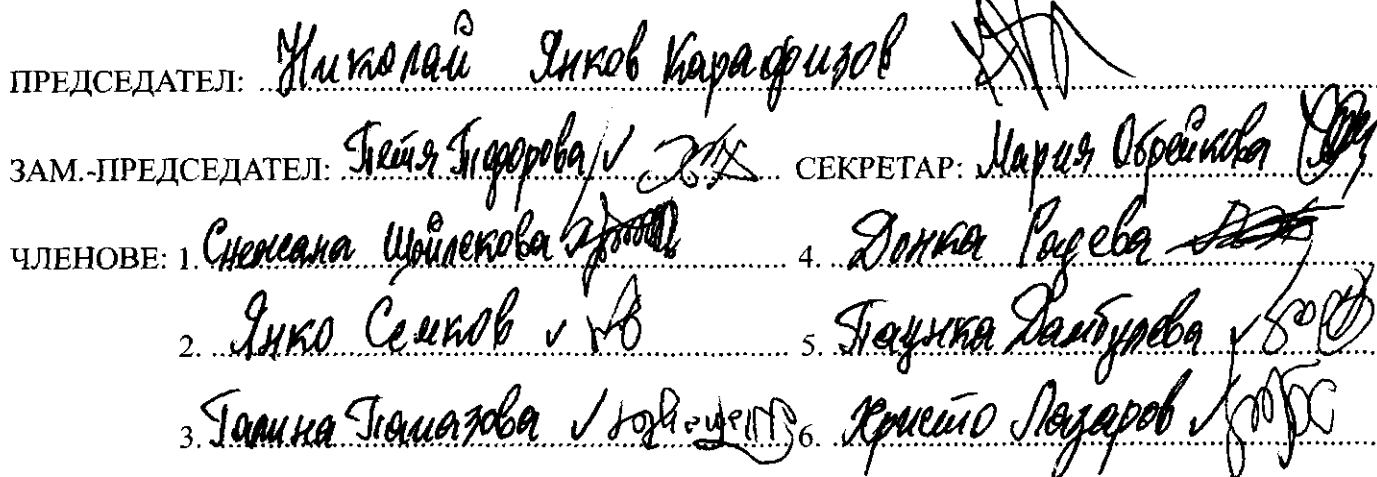 ПРЕДСЕДАТЕЛ: Николай Янков Карафизов
ЗАМ.-ПРЕДСЕДАТЕЛ: Петя Тодорова СЕКРЕТАР: Мария Обрейкова
ЧЛЕНОВЕ: 1. Снежана Шойлекова 4. Донка Радева
2. Янко Семков 5. Паунка Дамбулева
3. Галина Памазова 6. Христо Лазаров